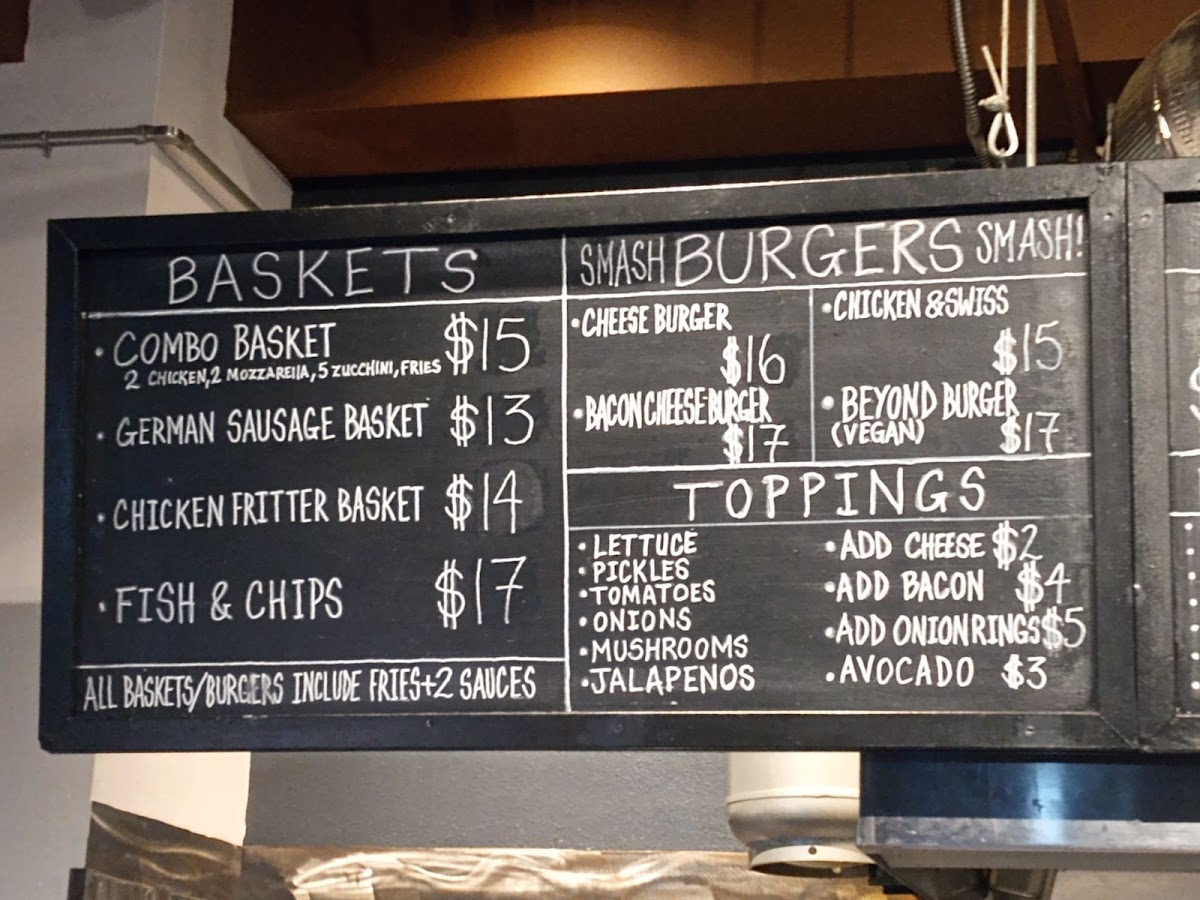 BASKETS
• COMBO BASKET $15
2 CHICKEN, 2 MOZZARELLA, 5 ZUCCHINI, FRIES
• GERMAN SAUSAGE BASKET $13
• CHICKEN FRITTER BASKET $14
• FISH & CHIPS $17
ALL BASKETS/BURGERS INCLUDE FRIES+2 SAUCES
SMASH BURGERS SMASH!
• CHEESE BURGER
$16
• BACON CHEESE BURGER
$17
• CHICKEN & SWISS
$15
• BEYOND BURGER
(VEGAN) $17
TOPPINGS
• LETTUCE
• PICKLES
• TOMATOES
• ONIONS
• MUSHROOMS
• JALAPENOS
• ADD CHEESE $2
• ADD BACON $4
• ADD ONION RINGS $5
• AVOCADO $3